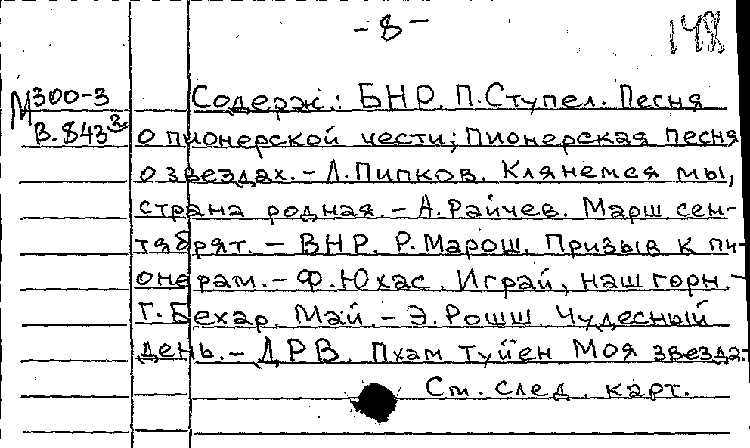 - 8 -
148
М300-3
В.843²
Содерж.: БНР. П.Ступел. Песня
о пионерской чести; Пионерская песня
о звездах. – Л.Пипков. Клянемся мы,
страна родная. – А.Райчев. Марш сен-
тябрят. – ВНР. Р.Марош. Призыв к пи-
онерам. – Ф.Юхас. Играй, наш горн. –
Т.Бехар. Май. – Э.Рошш. Чудесный
день. – ДРВ. Пхам Туйен Моя звезда. –
См. след. карт.